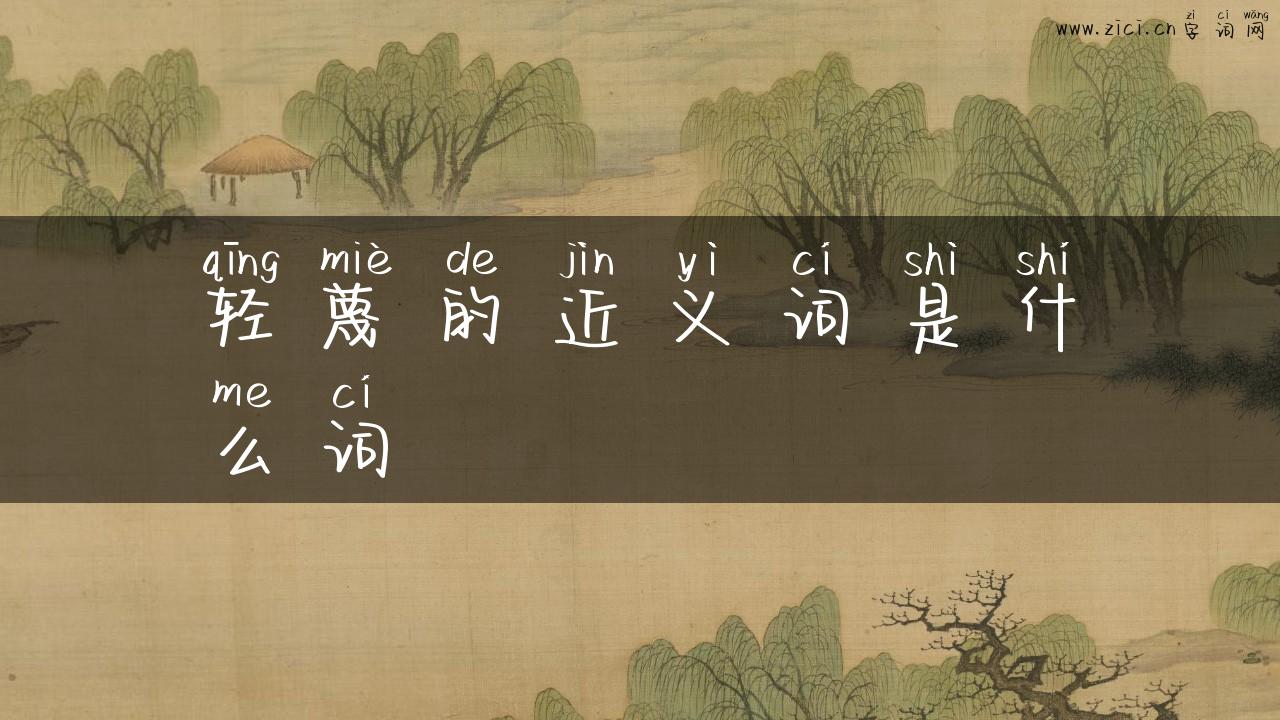 zì cí wǎng
www.zici.cn 字 词 网
qīng miè de jìn yì cí shì shí
轻 蔑 的 近 义 词 是 什
me cí
么 词